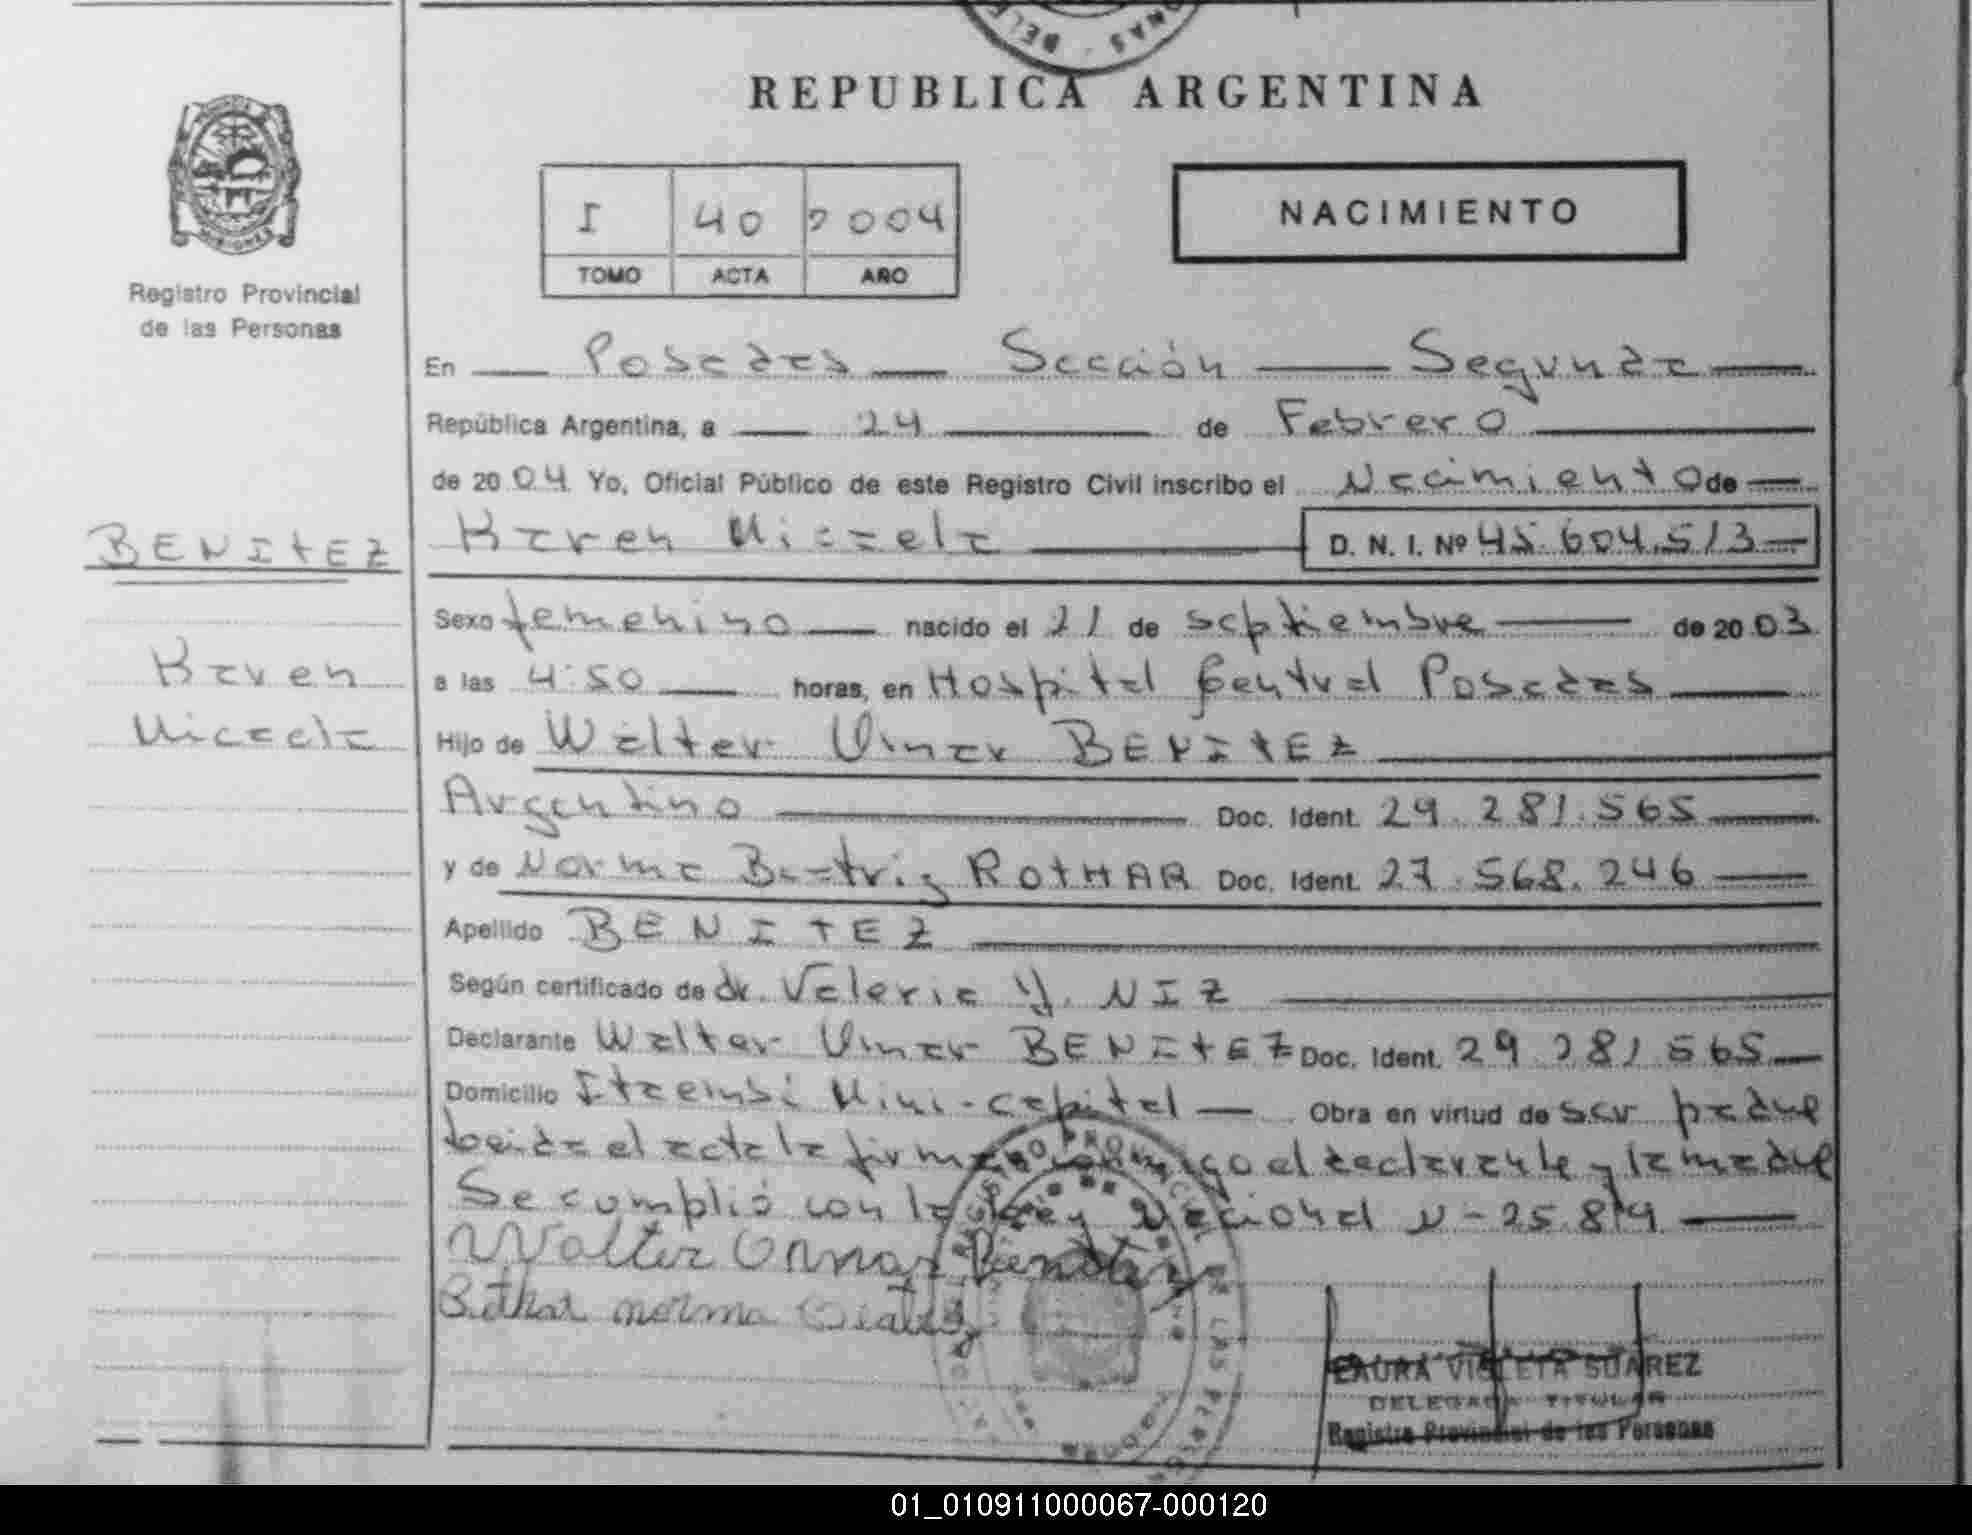 REPUBLICA ARGENTINA
I 40 2004
TOMO ACTA AÑO
NACIMIENTO
Registro Provincial
de las Personas
En Posadas Sección Segunda
República Argentina, a 24 de Febrero
de 2004 Yo, Oficial Público de este Registro Civil inscribo el Nacimiento de
BENITEZ
Karen Micaela D. N. I. Nº 45.604.513
Sexo femenino nacido el 21 de septiembre de 2003
Karen
Micaela
a las 4:50 horas, en Hospital Central Posadas
Hijo de Walter Omar BENITEZ
Argentino Doc. Ident. 29.281.565
y de Norma Beatriz ROTHAR Doc. Ident. 27.568.246
Apellido BENITEZ
Según certificado de dr. Valeria Y. NIZ
Declarante Walter Omar BENITEZ Doc. Ident. 29.281.565
Domicilio Itaembé Mini-capital Obra en virtud de ser padre
Leída el acta la firma conmigo el declarante y la madre
Se cumplió con la Ley Nacional N-25.819
Walter Omar Benitez
norma Beatriz
REGISTRO PROVINCIAL DE LAS PERSONAS
LAURA VIOLETA SUAREZ
DELEGADA TITULAR
Registro Provincial de las Personas
01_010911000067-000120